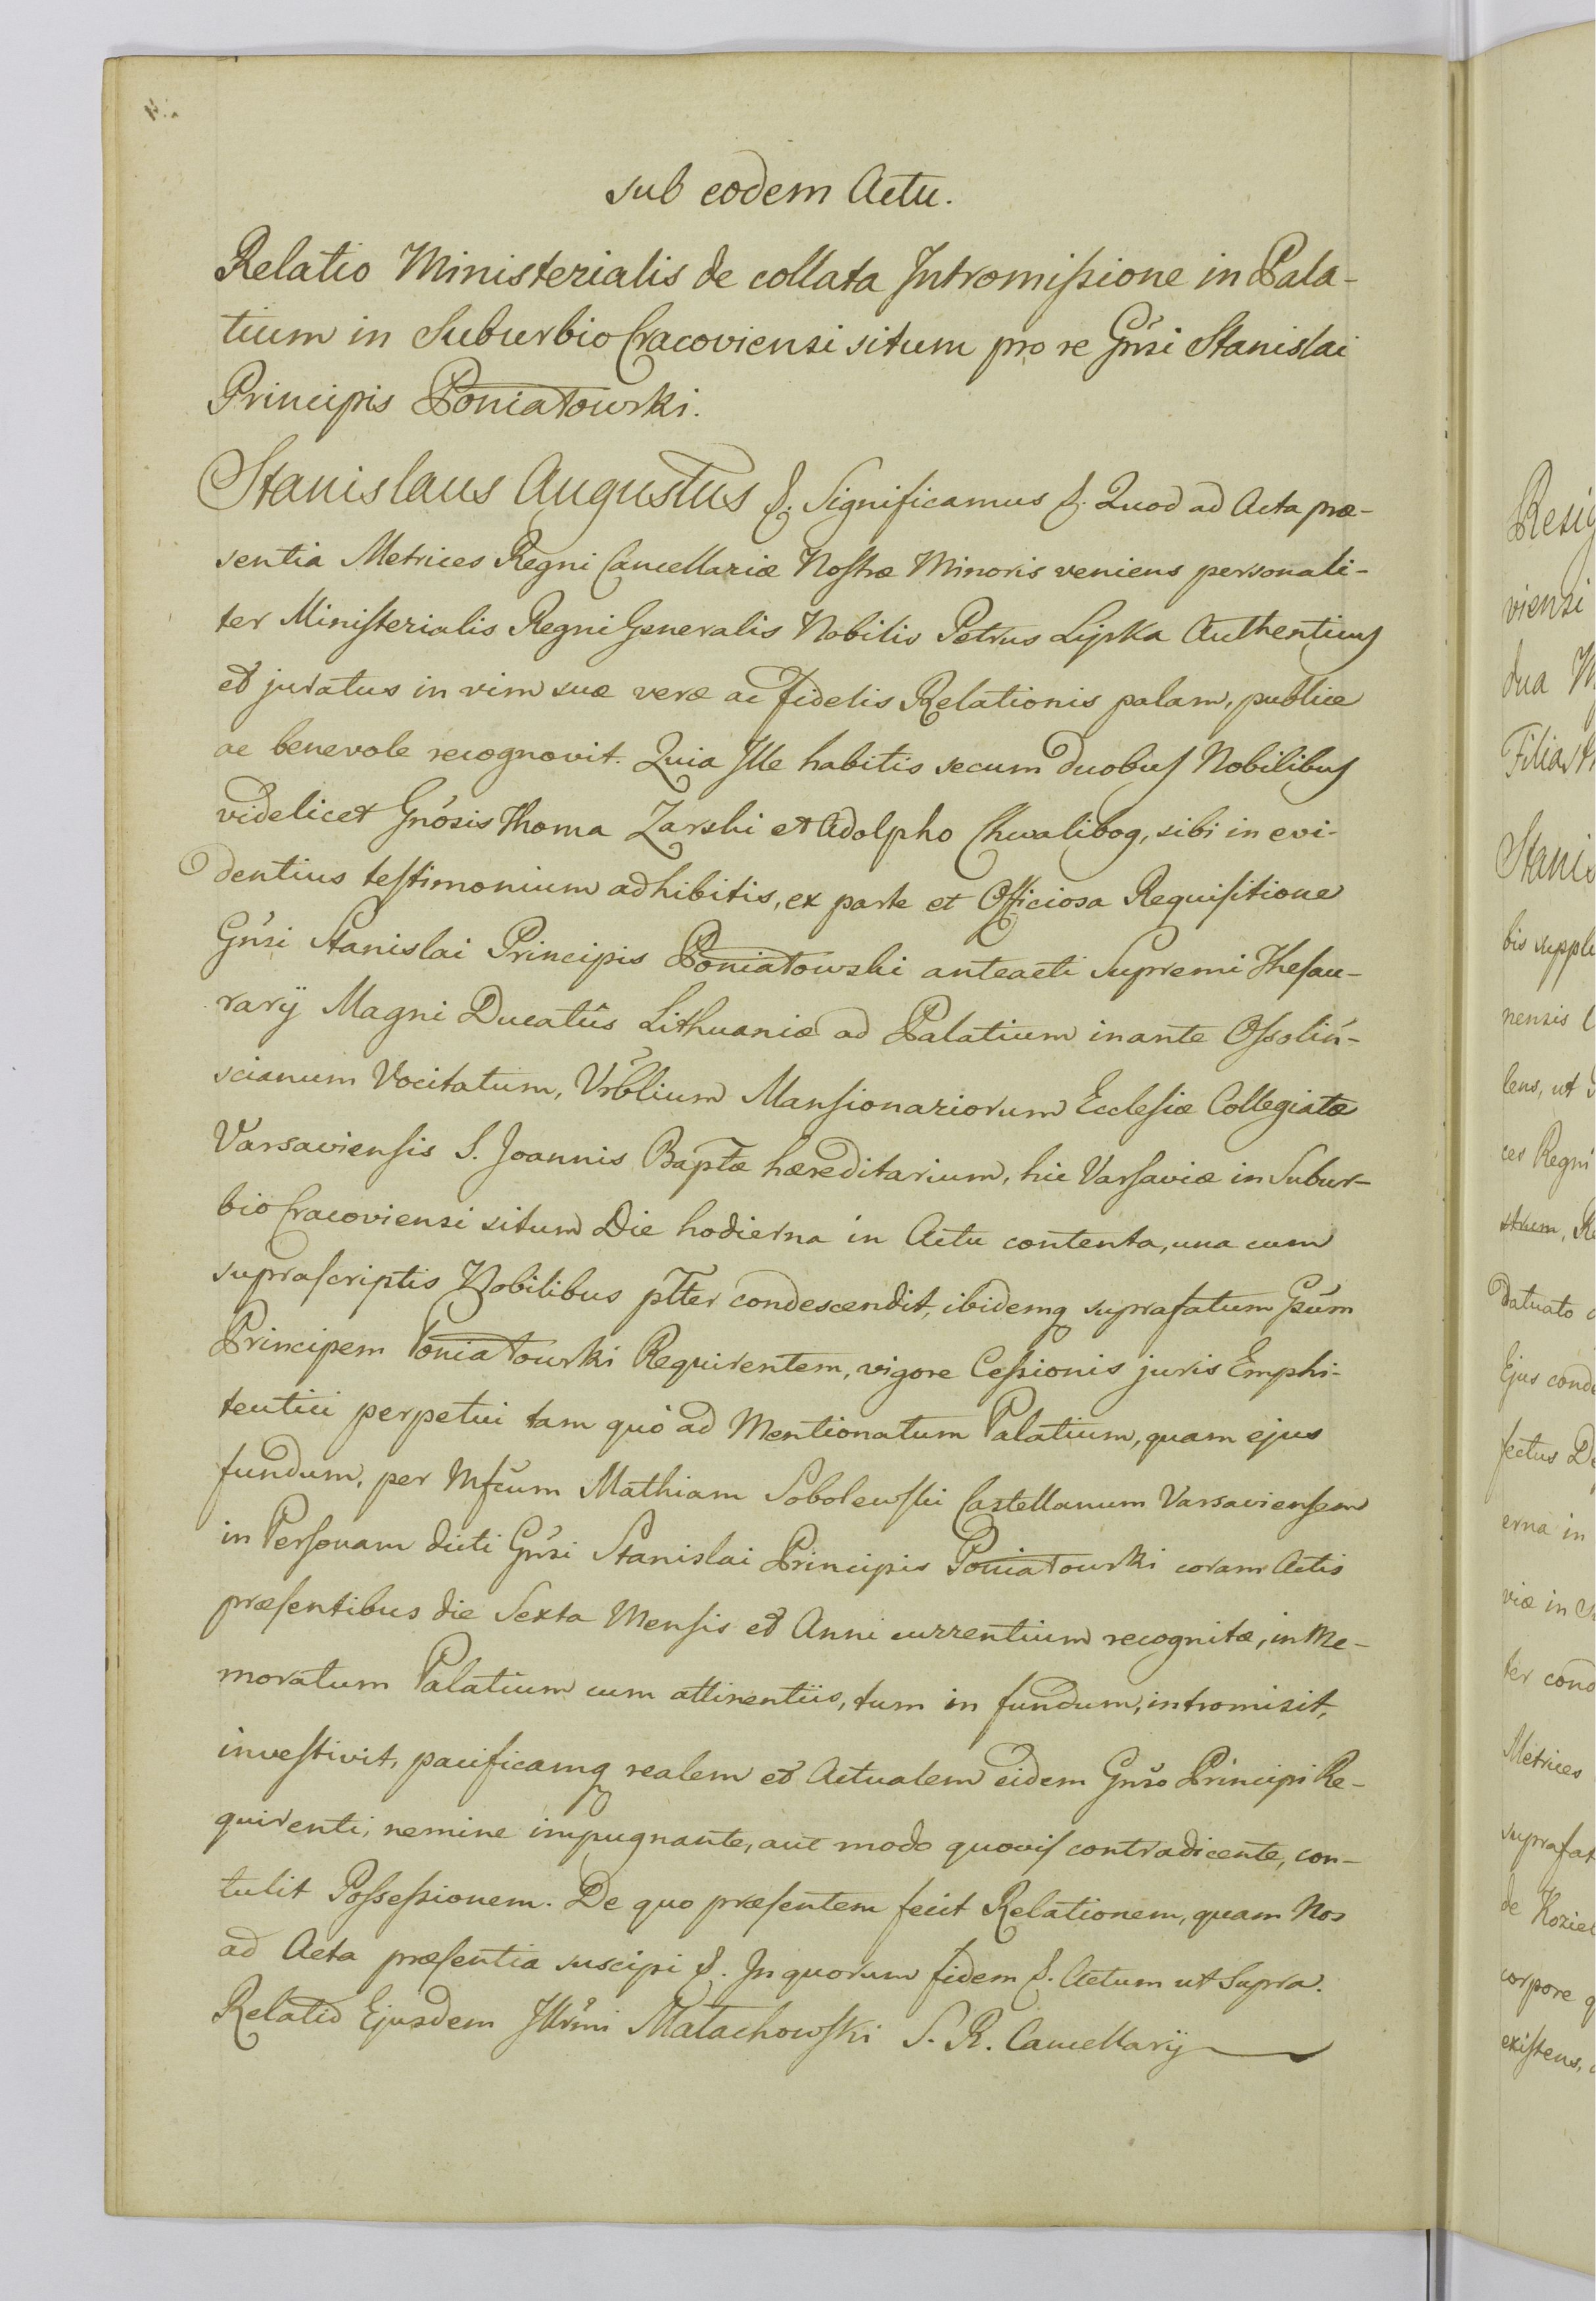 sub eodem Actu.
Relatio Ministerialis de collata Intromissione in Pala-
tium in Suburbio Cracoviensi situm pro re Gnsi Stanislai
Principis Poniatowski.
Stanislaus Augustus &. Significamus &. Quod ad Acta præ-
sentia Metrices Regni Cancellariæ Nostræ Minoris veniens personali-
ter Ministerialis Regni Generalis Nobilis Petrus Lipka Authenticus
et juratus in vim suæ veræ ac fidelis Relationis palam, publice
ac benevole recognovit. Quia Ille habitis secum duobus Nobilibus
videlicet Gnósis Thoma Zarski et Adolpho Chwalibog, sibi in evi-
dentius testimonium adhibitis, ex parte et Officiosa Requisitione
Gnsi Stanislai Principis Poniatowski anteacti Supremi Thesau-
rarij Magni Ducatûs Lithuaniæ ad Palatium inante Ossoliń-
scianum Vocitatum, Vrblium Mansionariorum Ecclesiæ Collegiatæ
Varsaviensis S. Joannis Baptæ hæreditarium, hic Varsaviæ in Subur-
bio Cracoviensi situm Die hodierna in Actu contenta, una cum
suprascriptis Nobilibus ptter condescendit, ibidemq suprafatum Gsum
Principem Poniatowski Requirentem, vigore Cessionis juris Emphi-
teutici perpetui tam quò ad Mentionatum Palatium, quam ejus
fundum, per Mfcum Mathiam Sobolewski Castellanum Varsaviensem
in Personam dicti Gnsi Stanislai Principis Poniatowski coram Actis
præsentibus die Sexta Mensis et Anni currentium recognitæ, in Me-
moratum Palatium cum attinentiis, tum in fundum, intromisit,
investivit, pacificamq realem et Actualem eidem Gnso Principi Re-
quirenti, nemine impugnante, aut modo quovis contradicente, con-
tulit Possessionem. De quo præsentem fecit Relationem, quam Nos
ad Acta præsentia suscipi &. In quorum fidem &. Actum ut Supra.
Relatio Ejusdem Illrmi Małachowski S. R. Cancellarij
Resig
viensi
dua
Filia
Stanis
bis suppl
nensis
lens, ut
ces Regni
strum,
datuato
Ejus conde
fectus
erna in
viæ in
ter cond
Metrices
suprafat
de Koziel
corpore q
existens,